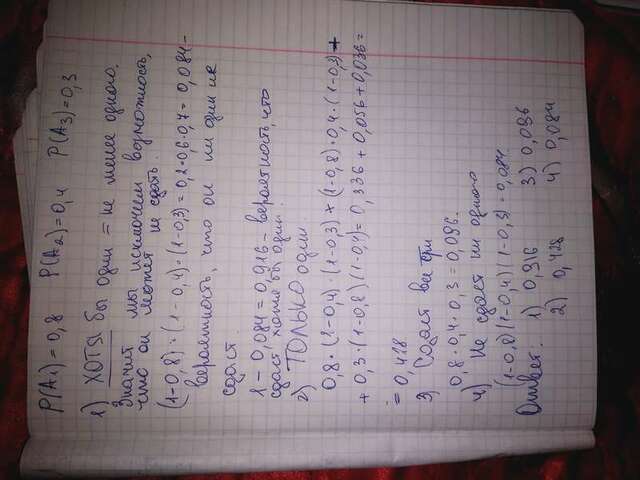 P(A1) = 0,8 P(A2) = 0,4 P(A3) = 0,3
1) ХОТЯ бы один = не менее одного.
Значит мы исключаем возможность,
что он может не сдать.
(1-0,8)·(1-0,4)·(1-0,3) = 0,2·0,6·0,7 = 0,084 -
вероятность, что он ни один не
сдаст.
1 - 0,084 = 0,916 - вероятность, что
сдаст хотя бы один.
2) ТОЛЬКО один
0,8·(1-0,4)·(1-0,3) + (1-0,8)·0,4·(1-0,3) +
+ 0,3·(1-0,8)(1-0,4) = 0,336 + 0,056 + 0,036 =
= 0,428
3) Сдаст все три
0,8·0,4·0,3 = 0,096.
4) Не сдаст ни одного
(1-0,8)(1-0,4)(1-0,3) = 0,084.
Ответ: 1) 0,916 3) 0,096
2) 0,428 4) 0,084